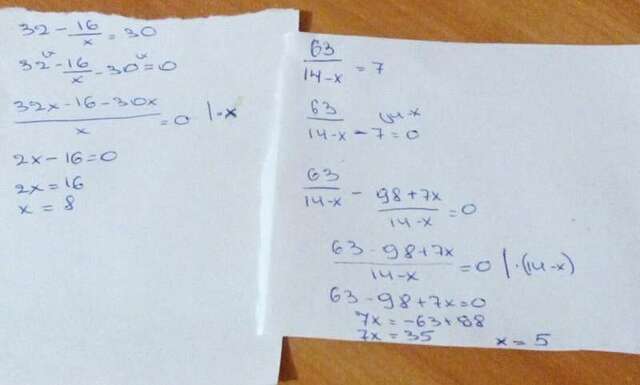 32 - 16/x = 30
32 - 16/x - 30 = 0
(32x - 16 - 30x)/x = 0 |·x
2x - 16 = 0
2x = 16
x = 8
63/(14-x) = 7
63/(14-x) - 7 = 0
63/(14-x) - (98+7x)/(14-x) = 0
(63 - 98 + 7x)/(14-x) = 0 |·(14-x)
63 - 98 + 7x = 0
7x = -63 + 98
7x = 35
x = 5